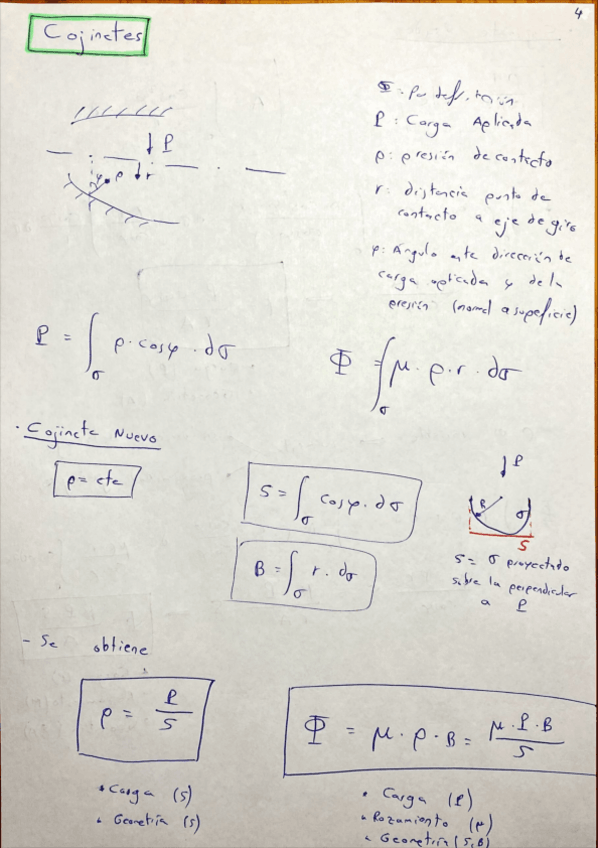 4
Cojinetes
Φ: Par de fricción
P: Carga Aplicada
p: presión de contacto
r: distancia punto de
contacto a eje de giro
φ: Ángulo ente dirección de
carga aplicada y de la
presión (normal a superficie)
P
φ p r
P = ∫σ p · cosφ · dσ
Φ = ∫σ μ · p · r · dσ
· Cojinete Nuevo
p = cte
S = ∫σ cosφ · dσ
B = ∫σ r · dσ
P
R σ
S
S = σ proyectado
sobre la perpendicular
a P
- Se obtiene
p = P / S
Φ = μ · p · B = μ · P · B / S
• Carga (S)
• Geometría (S)
• Carga (P)
• Rozamiento (μ)
• Geometría (S, B)